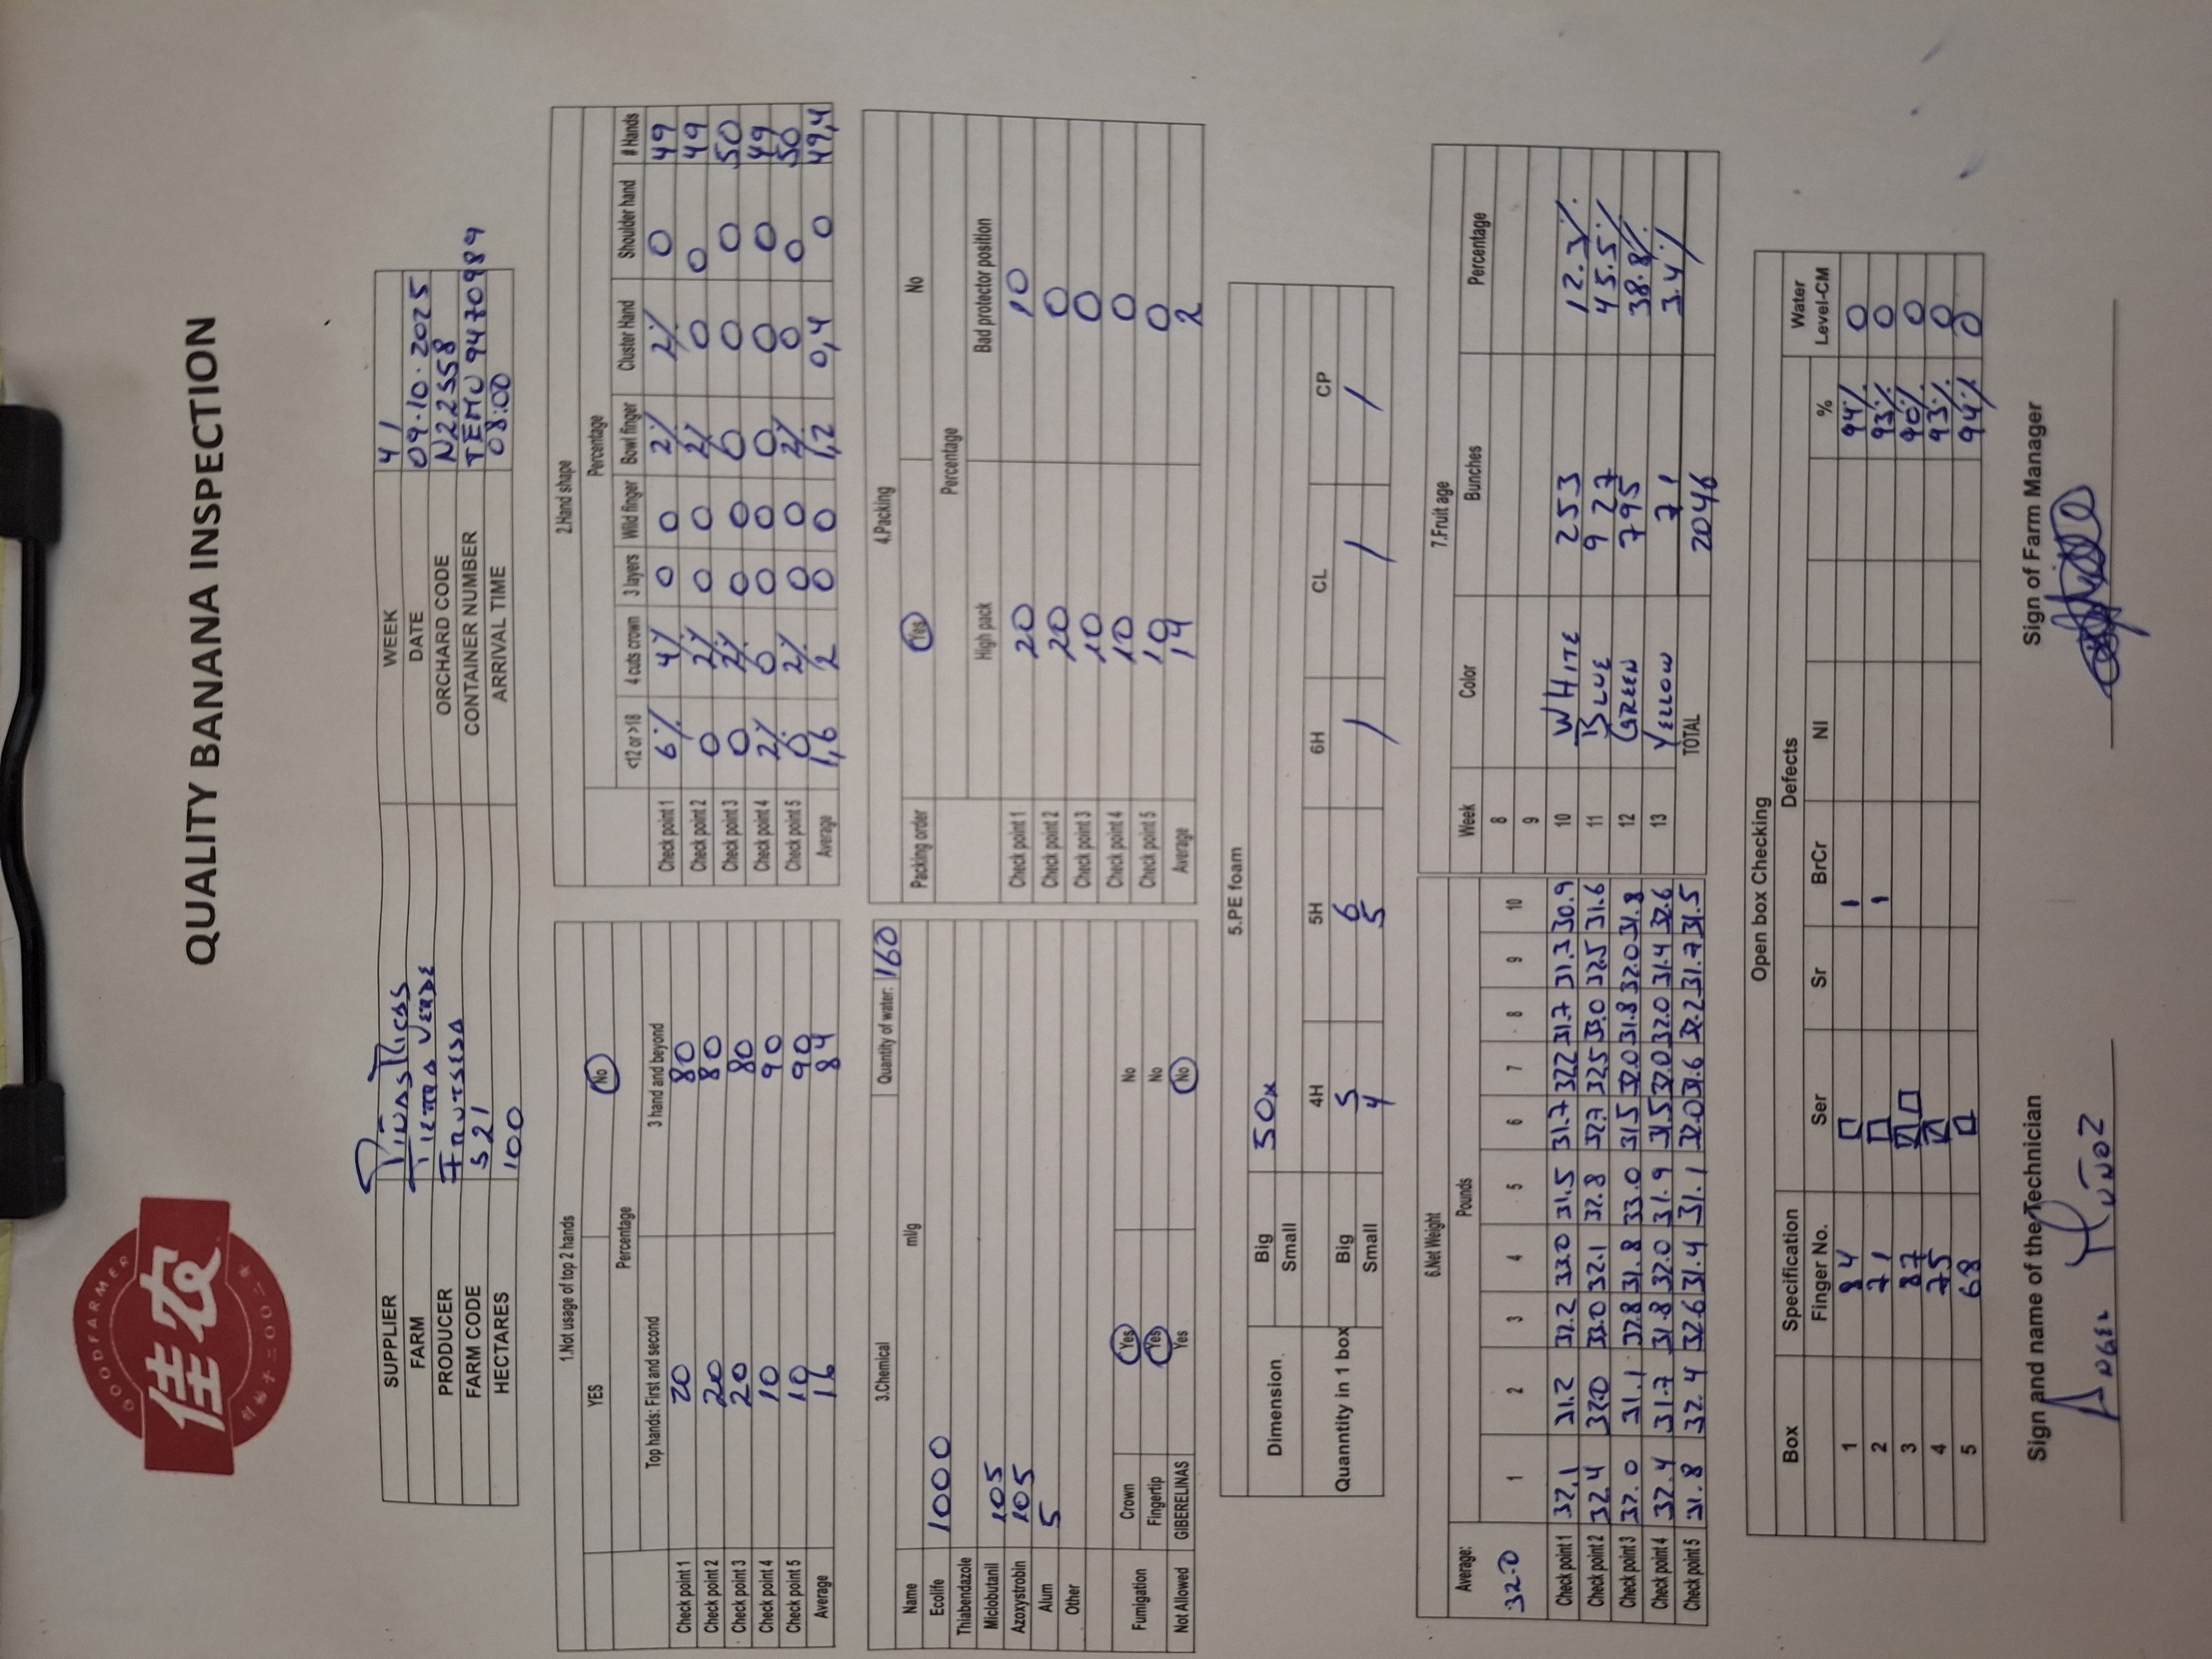 GOODFARMER
佳农
创始于二〇〇二年
QUALITY BANANA INSPECTION
SUPPLIER Piñas Ricas WEEK 41
FARM TIERRA VERDE DATE 09.10.2025
PRODUCER FRUTSESA ORCHARD CODE N22558
FARM CODE 521 CONTAINER NUMBER TEMU 9470989
HECTARES 100 ARRIVAL TIME 08:00
1.Not usage of top 2 hands
YES No
Percentage
Top hands: First and second 3 hand and beyond
Check point 1 20 80
Check point 2 20 80
Check point 3 20 80
Check point 4 10 90
Check point 5 10 90
Average 16 84
2.Hand shape
Percentage
<12 or >18 4 cuts crown 3 layers Wild finger Bowl finger Cluster Hand Shoulder hand # Hands
Check point 1 6% 4% 0 0 2% 2% 0 49
Check point 2 0 2% 0 0 2% 0 0 49
Check point 3 0 2% 0 0 0 0 0 50
Check point 4 2% 0 0 0 0 0 0 49
Check point 5 0 2% 0 0 2% 0 0 50
Average 1,6 2 0 0 1,2 0,4 0 49,4
3.Chemical Quantity of water: 160
Name ml/g
Ecolife 1000
Thiabendazole
Miclobutanil 105
Azoxystrobin 105
Alum 5
Other
Fumigation Crown Yes No
Fingertip Yes No
Not Allowed GIBERELINAS Yes No
4.Packing
Packing order Yes No
Percentage
High pack Bad protector position
Check point 1 20 10
Check point 2 20 0
Check point 3 10 0
Check point 4 10 0
Check point 5 10 0
Average 14 2
5.PE foam
Dimension Big 50x
Small
4H 5H 6H CL CP
Quanntity in 1 box Big 5 6 / / /
Small 4 5
6.Net Weight
Average: Pounds
32.0 1 2 3 4 5 6 7 8 9 10
Check point 1 32.1 31.2 32.2 33.0 31.5 31.7 32.2 31.7 31.3 30.9
Check point 2 32.4 32.0 33.0 32.1 32.8 32.7 32.5 33.0 32.5 31.6
Check point 3 32.0 31.1 32.8 31.8 33.0 31.5 32.0 31.8 32.0 31.8
Check point 4 32.4 31.7 31.8 32.0 31.9 31.5 32.0 32.0 31.4 32.6
Check point 5 31.8 32.4 32.6 31.4 31.1 32.0 31.6 32.2 31.7 31.5
7.Fruit age
Week Color Bunches Percentage
8
9
10 WHITE 253 12.3%
11 BLUE 927 45.5%
12 GREEN 795 38.8%
13 YELLOW 71 3.4%
TOTAL 2046
Open box Checking
Box Specification Defects Water
Finger No. Ser Sr BrCr NI % Level-CM
1 84 1 94% 0
2 71 1 93% 0
3 87 90% 0
4 75 93% 0
5 68 94% 0
Sign and name of the Technician Sign of Farm Manager
ANGEL MUÑOZ